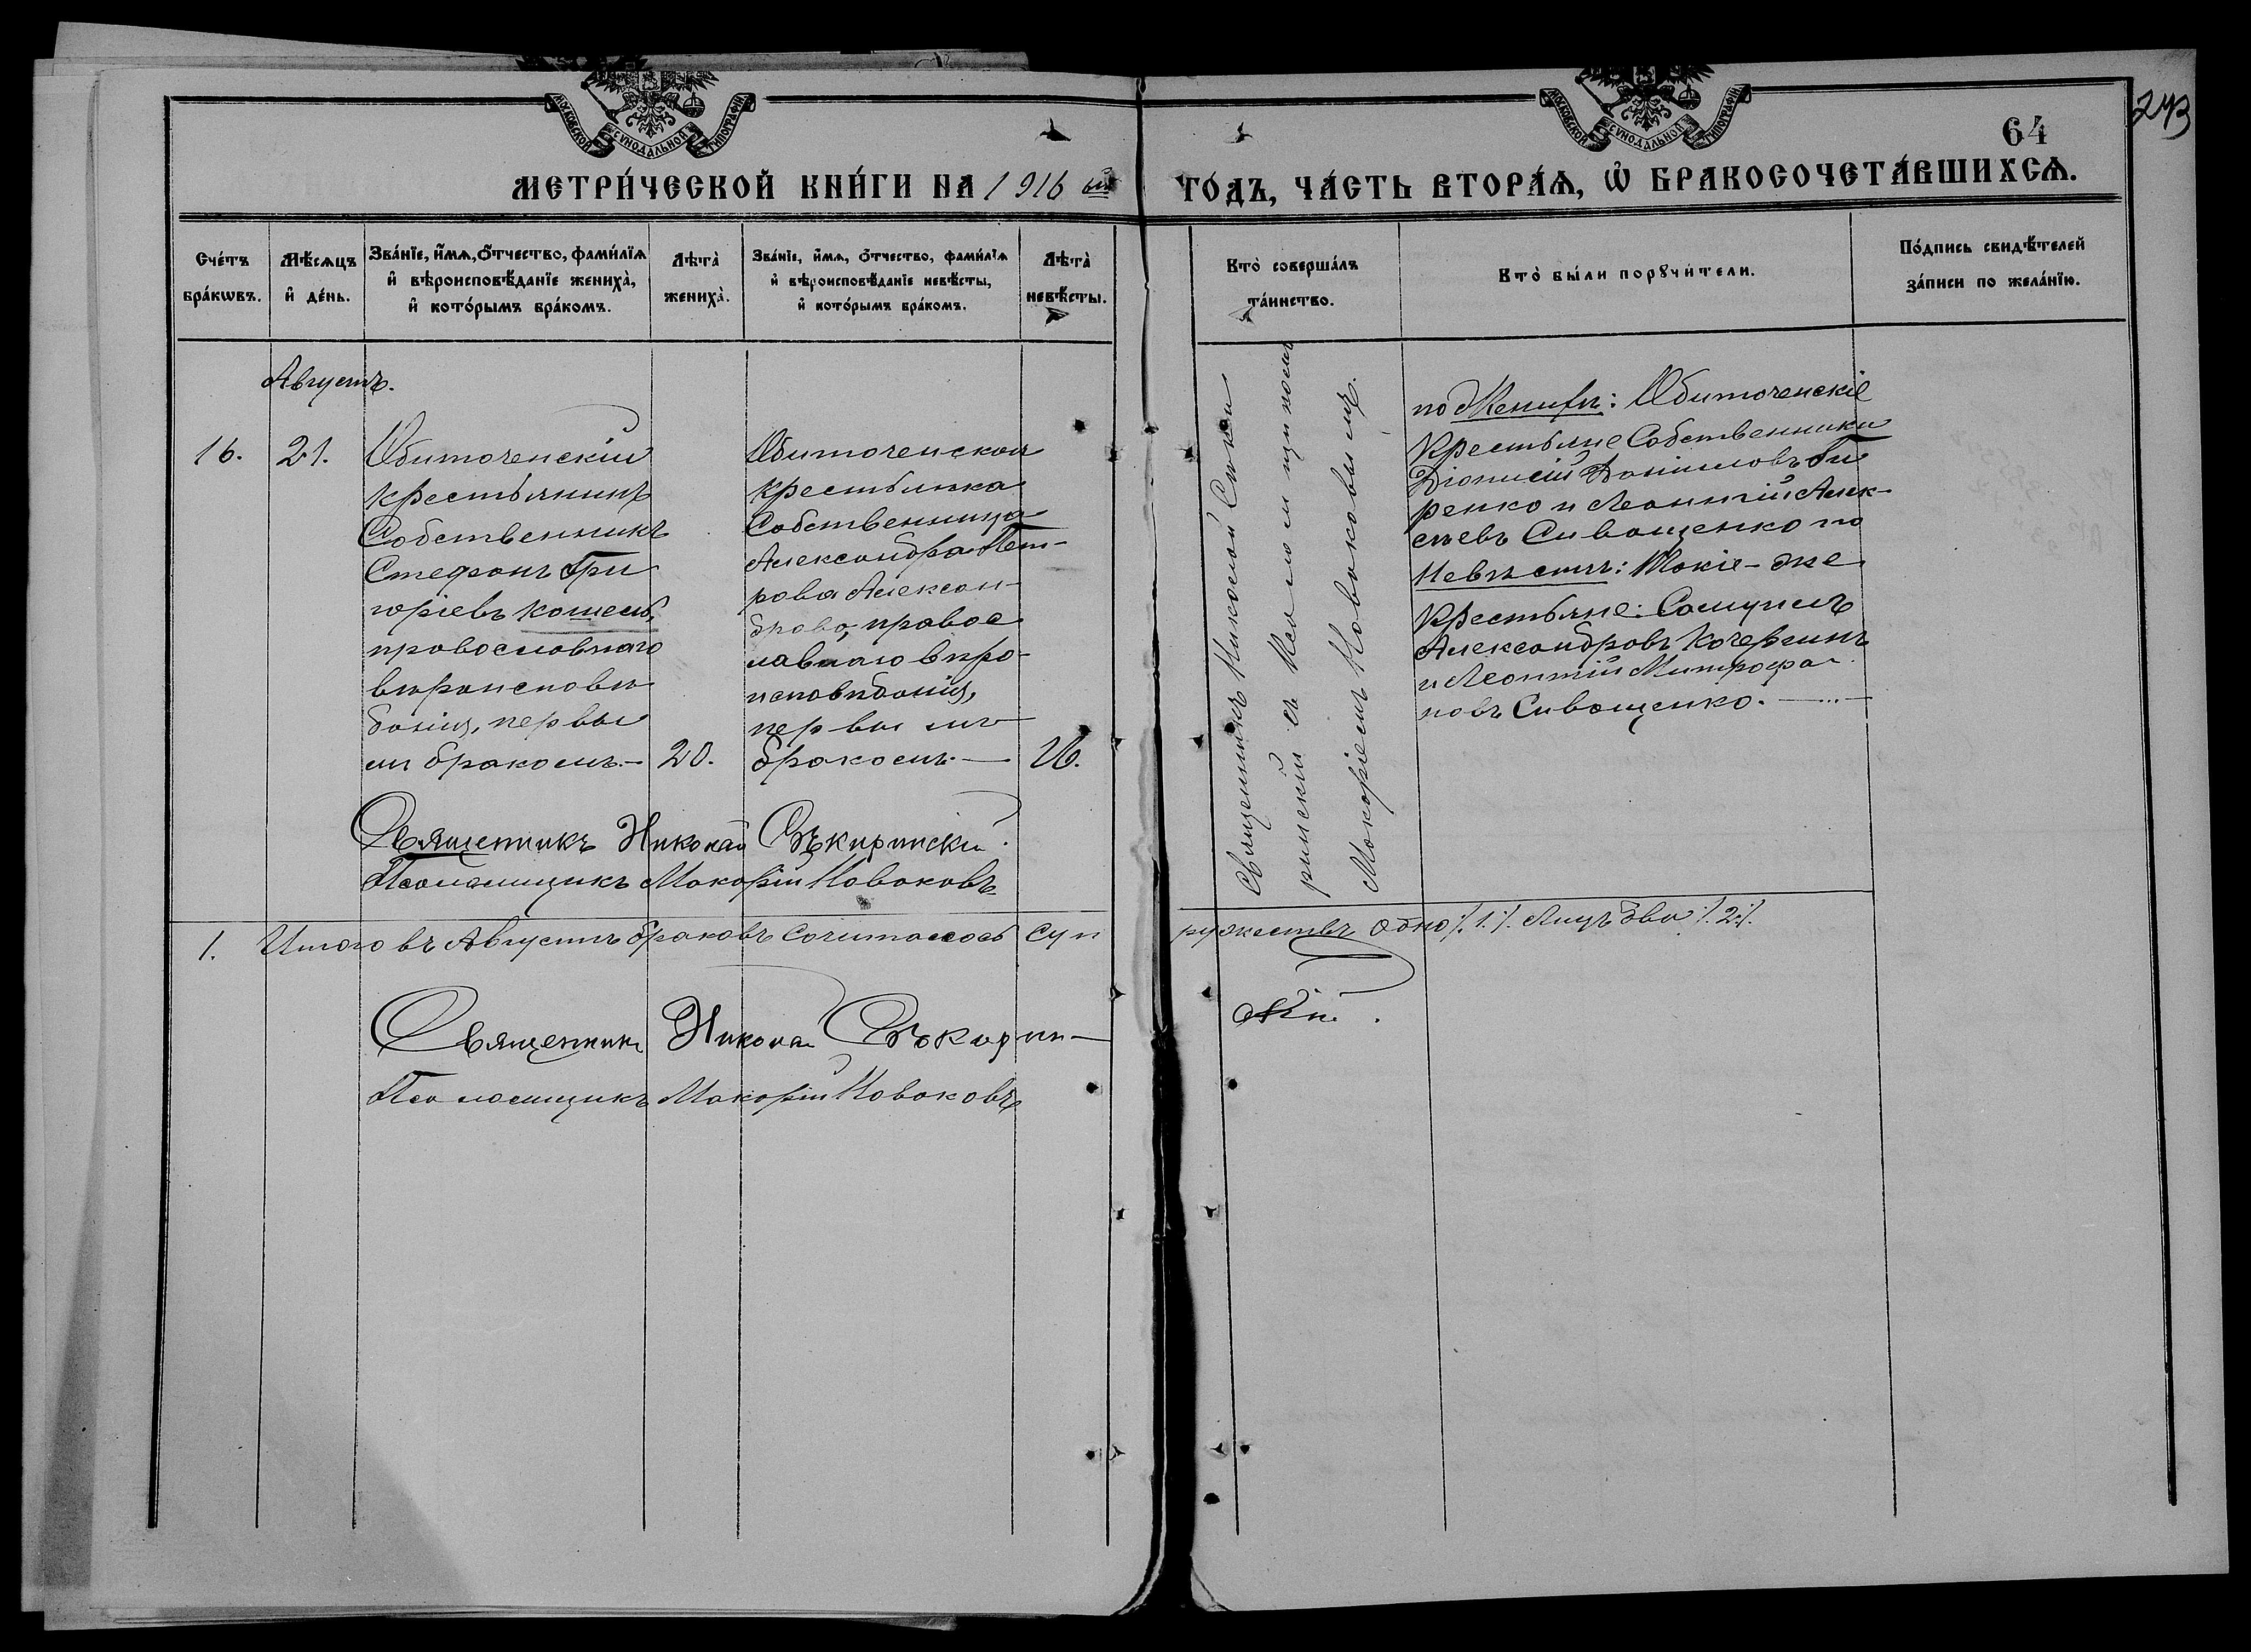 МОСКОВСКОЙ СѴНОДАЛЬНОЙ ТИПОГРАФІИ
МОСКОВСКОЙ СѴНОДАЛЬНОЙ ТИПОГРАФІИ
243
64
МЕТРИ́ЧЕСКОЙ КНИ́ГИ НА 1916 ый
ГО́ДЪ, ЧА́СТЬ ВТОРА́Ѧ, Ѡ҆ БРАКОСОЧЕТА́ВШИХСѦ.
Сче́тъ
бра́кѡвъ.
Мѣ́сѧцъ
и҆ де́нь.
Зва́нїе, и҆́мѧ, ѻ҆́тчество, фами́лїѧ
и҆ вѣроисповѣ́данїе жениха̀,
и҆ кото́рымъ бра́комъ.
Лѣта̀
жениха̀.
Зва́нїе, и҆́мѧ, ѻ҆́тчество, фами́лїѧ
и҆ вѣроисповѣ́данїе невѣ́сты,
и҆ кото́рымъ бра́комъ.
Лѣта̀
невѣ́сты.
Кто̀ соверша́лъ
та́инство.
Кто̀ бы́ли порꙋчи́тели.
По́дпись свидѣ́телей
за́писи по жела́нїю.
Августъ.
16.
21.
Обиточенскій
крестьянинъ
Собственникъ
Стефанъ Гри
горіевъ Кошель,
православнаго
вѣроисповѣ
данія, первы
мъ бракомъ.—
20.
Обиточенская
крестьянка
Собственница
Александра Пет-
рова Алексан-
дрова, правос
лавнаго вѣро-
исповѣданія,
первы мъ
бракомъ.—
16.
Священникъ Николай Сѣки
ринскій съ Псаломщикомъ
Макаріемъ Новаковымъ.
по Женихѣ: Обиточенскіе
Крестьяне Собственники
Діонисій Даниловъ Ги
ренко и Леонтій Алек-
сѣевъ Сиващенко по
Невѣстѣ: Такіе-же
Крестьяне: Самуилъ
Александровъ Кочергинъ
и Леонтій Митрофа-
новъ Сиващенко.
Священникъ Николай Сѣкиринскій
Псаломщикъ Макарій Новаковъ
1. Итого въ Августѣ браковъ Сочиталось Суп
ружествъ одно ⁒ 1 ⁒ Лицъ два ⁒ 2 ⁒
Священникъ Николай Сѣкирин-
скій.
Псаломщикъ Макарій Новаковъ